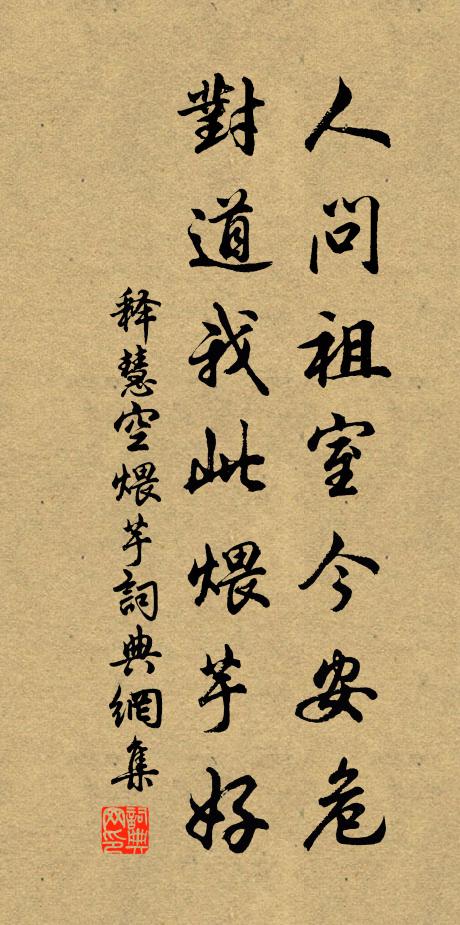 人問祖室今安危
對道我此煨芋好
释慧空煨芋詞典網集
詞典
网印